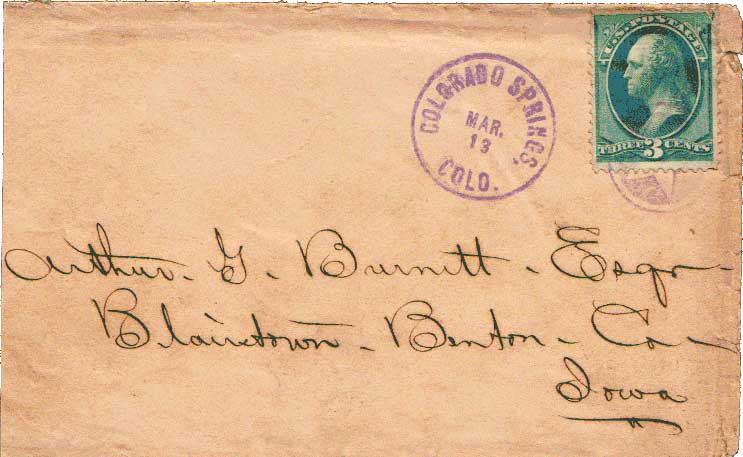 U.S. POSTAGE
THREE 3 CENTS
COLORADO SPRINGS,
MAR.
13
COLO.
Arthur. G. Burnett. Esqr
Blairstown. Benton. Co
Iowa